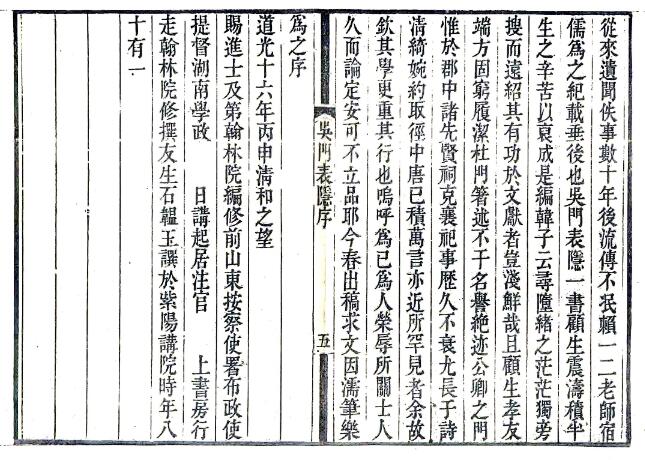 從來遺聞佚事數十年後流傳不泯賴一二老師宿
儒爲之紀載垂後也吳門表隱一書顧生震濤積半
生之辛苦以裒成是編韓子云尋墜緒之茫茫獨旁
搜而遠紹其有功於文獻者豈淺鮮哉且顧生孝友
端方固窮履潔杜門箸述不干名譽絶迹公卿之門
惟於郡中諸先賢祠克襄祀事歷久不衰尤長于詩
淸綺婉約取徑中唐已積萬言亦近所罕見者余故
欽其學更重其行也嗚呼爲已爲人榮辱所關士人
久而論定安可不立品耶今春出稿求文因濡筆樂
吳門表隱序
五
爲之序
道光十六年丙申淸和之望
賜進士及第翰林院編修前山東按察使署布政使
提督湖南學政 日講起居注官 上書房行
走翰林院修撰友生石韞玉譔於紫陽講院時年八
十有一